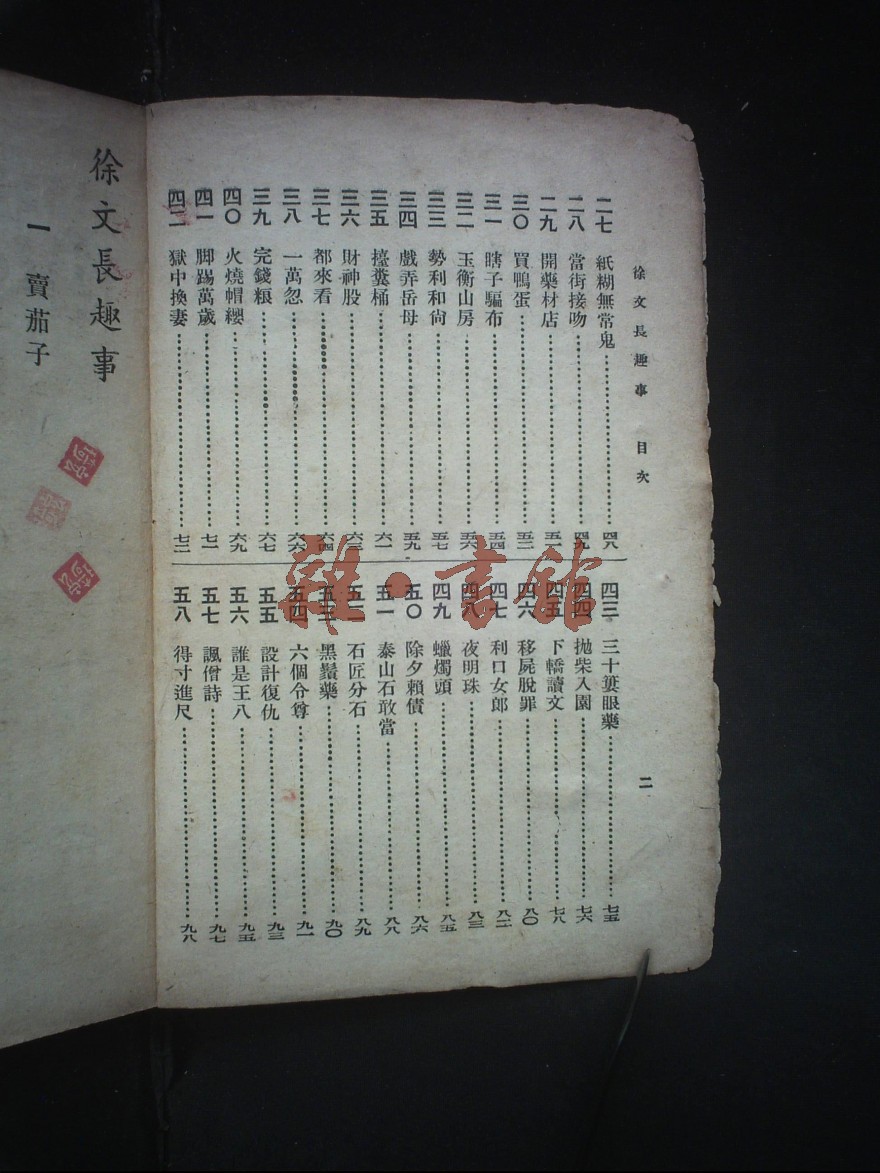 徐文長趣事　目次
二
二七　紙糊無常鬼……四八
二八　當街接吻……四九
二九　開藥材店……五一
三〇　買鴨蛋……五二
三一　瞎子驅布……五四
三二　玉衡山房……五六
三三　勢利和尙……五七
三四　戲弄岳母……五九
三五　擡糞桶……六一
三六　財神股……六三
三七　都來看……六四
三八　一萬忽……六六
三九　完錢粮……六七
四〇　火燒帽纓……六九
四一　脚踢萬歲……七一
四二　獄中換妻……七三
四三　三十簍眼藥……七五
四四　拋柴入園……七六
四五　下轎讀文……七八
四六　移屍脫罪……八〇
四七　利口女郎……八二
四八　夜明珠……八三
四九　蠟燭頭……八五
五〇　除夕賴債……八六
五一　泰山石敢當……八八
五二　石匠分石……八九
五三　黑鬚藥……九〇
五四　六個令尊……九一
五五　設計復仇……九三
五六　誰是王八……九五
五七　諷僧詩……九七
五八　得寸進尺……九八
徐文長趣事
一　賣茄子
雜·書館